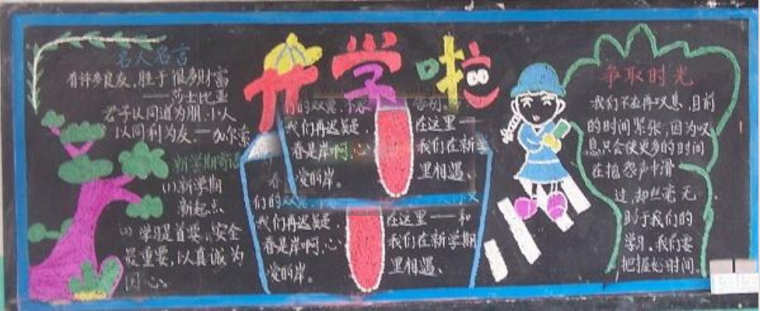 名人名言
有许多良友，胜于很多财富
——莎士比亚
君子以同道为朋，小人
以同利为友。
新学期寄语
(1)新学期
新起点
学习是首要，安全
最重要，以真诚为
开学啦
我们再迟疑是，
春是岸啊，心
爱的岸。
在这里——
我们在新学
里相遇。
们的双
我们再迟疑是，
春是岸啊，心
爱的岸。
在这里——和
我们在新学期
里相遇。
争取时光
我们不应再叹息，目前
的时间紧张，因为叹
息只会使更多的时间
在抱怨声中滑
过，却丝毫无
助于我们的
学习，我们要
把握好时间。